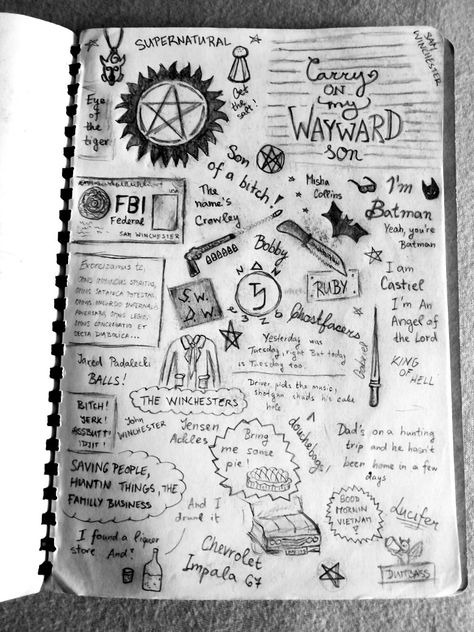 SUPERNATURAL
SAM WINCHESTER
Eye
of the
tiger
Get
the salt!
Carry
ON
my
WAYWARD
SON
Son
of a bitch!
The
name's
Crowley
Misha
Collins
I'm
Batman
Yeah, you're
Batman
FBI
Federal
SAM WINCHESTER
Bobby
RUBY
I am
Castiel
I'm An
Angel of
the Lord
Exorcizamus te,
OMNIS IMMUNDUS SPIRITUS,
OMNIS SATANICA POTESTAS,
OMNIS INCURSIO INFERNALIS
ADVERSARII, OMNIS LEGIO,
OMNIS CONGREGATIO ET
SECTA DIABOLICA...
S.W.
D.W.
Ghostfacers
KING
OF
HELL
Jared Padalecki
BALLS!
Yesterday was
Tuesday, right But today
is Tuesday too.
THE WINCHESTERS
Driver picks the music,
shotgun shuds his cake
hole
BITCH!
JERK!
ASSBUTT!
IDJIT!
John
WINCHESTER
Jensen
Ackles
Bring
me some
pie!
douchebags!
Dad's on a hunting
trip and he hasn't
been home in a few
days
SAVING PEOPLE,
HUNTIN THINGS, THE
FAMILLY BUSINESS
GOOD
MORNIN
VIETNAM
!
Lucifer
And I
drunk it
I found a liquer
store And?
Chevrolet
Impala 67
DUMBASS